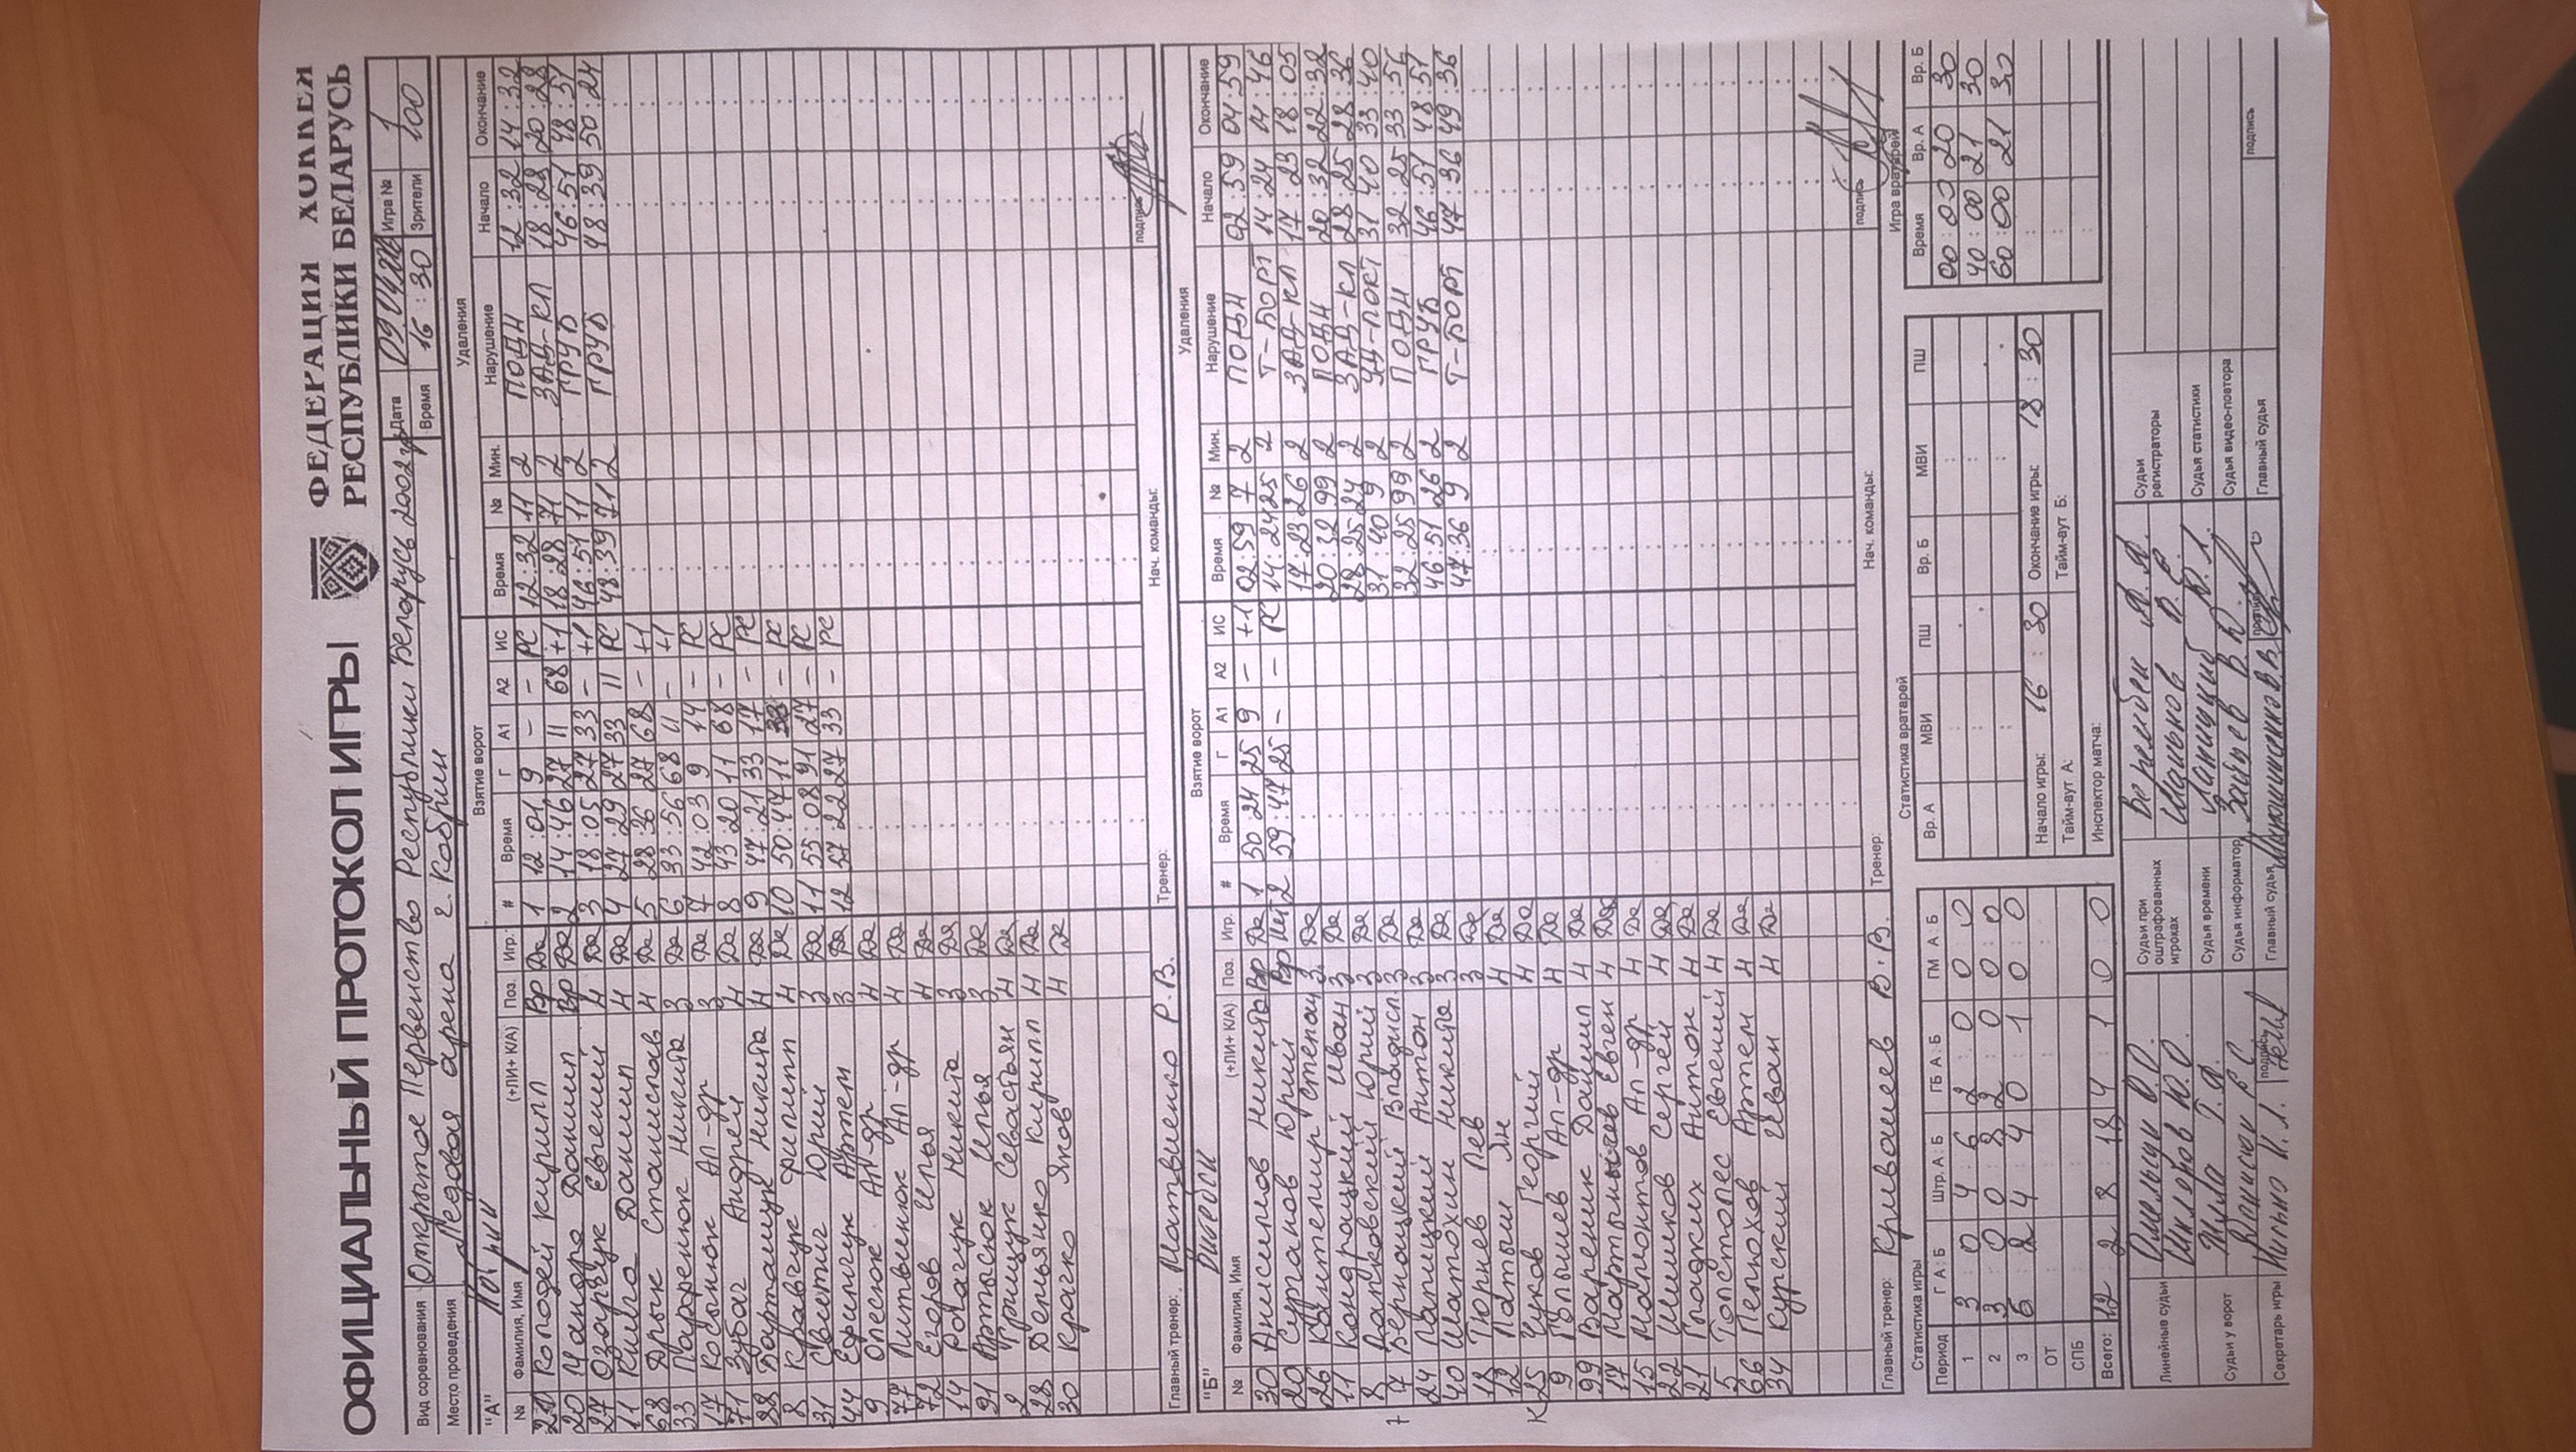 ОФИЦИАЛЬНЫЙ ПРОТОКОЛ ИГРЫ
ФЕДЕРАЦИЯ ХОККЕЯ
РЕСПУБЛИКИ БЕЛАРУСЬ
Вид соревнования Открытое Первенство Республики Беларусь 2002 Дата Игра № 1
Место проведения Ледовая арена г. Кобрин Время 16:30 Зрители 100
"А" Взятие ворот Удаления
№ Фамилия, Имя (+ЛИ+ К/А) Поз. Игр. # Время Г А1 А2 ИС Время № Мин. Нарушение Начало Окончание
Колодей Кирилл Вр Да 1 12:01 9 – – РС 12:32 11 2 ПОДН 12:32 14:32
20 Даниил Вр Да 2 14:46 27 11 68 +1 18:28 71 2 ЗАД-КЛ 18:28 20:28
27 Озарчук Евгений Н Да 3 18:05 27 33 – +1 46:51 11 2 ГРУБ 46:51 48:51
11 Даниил Н Да 4 27:29 27 33 11 РС 48:39 71 2 ГРУБ 48:39 50:24
68 Дрык Станислав Н Да 5 28:36 27 68 – +1
33 Парфенюк Никита З Да 6 33:56 68 11 – +1
17 Косынюк Ал-др З Да 7 42:03 9 14 – РС
71 Зубач Андрей Н Да 8 43:20 11 68 – РС
Никита Н Да 9 47:21 33 17 – РС
8 Кравчук Филипп Н Да 10 50:47 11 – РС
31 Свистич Юрий З Да 11 55:08 91 27 – РС
44 Ефимчук Артем З Да 12 57:22 27 33 – РС
9 Олесюк Ал-др Н Да
77 Литвинюк Ал-др Н Да
72 Егоров Илья Н Да
14 Никита З Да
91 Артысюк Илья З Да
2 Грицук Севастьян Н Да
28 Демьянко Кирилл Н Да
30 Крачко Яков Н Да
Главный тренер: Матвиенко Р.В. Тренер: Нач. команды: подпись
"Б" Витебск Взятие ворот Удаления
№ Фамилия, Имя (+ЛИ+ К/А) Поз. Игр. # Время Г А1 А2 ИС Время № Мин. Нарушение Начало Окончание
30 Анисимов Никита Вр Да 1 50:24 25 9 – +1 02:59 7 2 ПОДН 02:59 04:59
20 Султанов Юрий Вр Нет 2 59:47 25 – – РС 14:24 25 2 Т-БОРТ 14:24 14:46
26 Степан З Да 17:23 26 2 ЗАД-КЛ 17:23 18:05
11 Кондрацкий Иван З Да 20:32 99 2 ПОДН 20:32 22:32
8 Лапковский Юрий З Да 28:25 24 2 ЗАД-КЛ 28:25 28:36
7 Бернацкий Владисл. З Да 31:40 9 2 УД-ЛОКТ 31:40 33:40
24 Лапицкий Антон З Да 32:25 99 2 ПОДН 32:25 33:56
40 Шатохин Никита З Да 46:51 26 2 ГРУБ 46:51 48:51
18 Тюрнев Лев З Да 47:36 9 2 Т-БОРТ 47:36 49:36
12 Латыш Ян Н Да
К 25 Чуков Георгий Н Да
9 Ал-др Н Да
99 Вареник Даниил Н Да
17 Мартынычев Евген Н Да
15 Мамонтов Ал-др Н Да
22 Шишков Сергей Н Да
21 Гладких Антон Н Да
5 Толстопес Евгений Н Да
66 Пелюхов Артем Н Да
34 Курский Иван Н Да
Главный тренер: Кривошеев В.В. Тренер: Нач. команды: подпись
Статистика игры Статистика вратарей Игра вратарей
Период Г А : Б Штр. А : Б ГБ А : Б ГМ А : Б Вр. А МВИ ПШ Вр. Б МВИ ПШ Время Вр. А Вр. Б
1 3 : 0 4 : 6 2 : 0 0 : 0 00:00 20 30
2 3 : 0 0 : 8 2 : 0 0 : 0 40:00 21 30
3 6 : 2 4 : 4 0 : 1 0 : 0 60:00 21 30
ОТ Начало игры: 16:30 Окончание игры: 18:30
СПБ Тайм-аут А: Тайм-аут Б:
Всего: 12 : 2 8 : 18 4 : 1 0 : 0 Инспектор матча:
Линейные судьи Судьи при оштрафованных игроках Судьи регистраторы
Судья времени Судья статистики
Судьи у ворот Судья информатор Зайцев В. Судья видео-повтора
Секретарь игры подпись Главный судья подпись Главный судья подпись